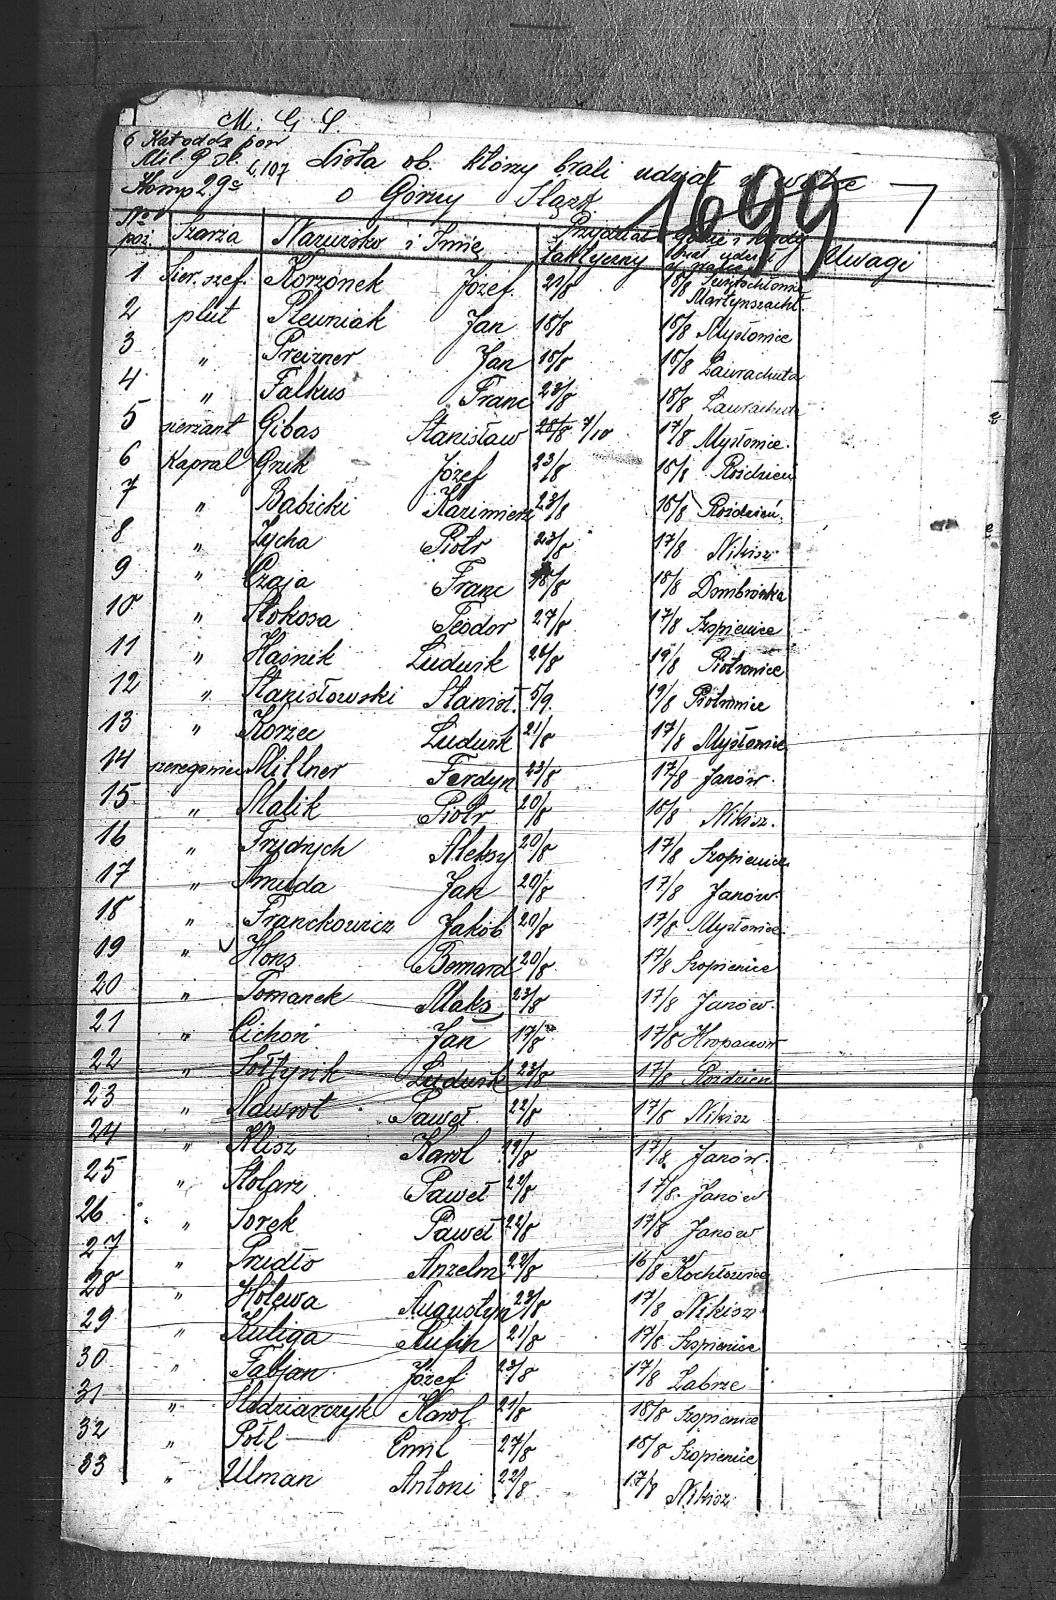 M. G. S.
6 Kat oddz por
Mil. G. Śl. L.107
Komp 29a
Lista ob. którzy brali udział w walce
o Górny Śląsk
1699 7
No poz. Szarża Nazwisko i Imię Przydział taktyczny Gdzie i kiedy brał udział w walce Uwagi
1 Sier. szef. Korzonek Józef 21/8 18/8 Świętochłowice Martynszacht.
2 plut Plewniak Jan 18/8 18/8 Mysłowice
3 " Preizner Jan 18/8 18/8 Laurachuta
4 " Falkus Franc 23/8 18/8 Laurachuta
5 sierżant Gibas Stanisław 28/8 7/10 17/8 Mysłowice.
6 Kapral Gnik Józef 23/8 18/8 Roździeń
7 " Babicki Kazimierz 23/8 18/8 Roździeń.
8 " Zycha Piotr 23/8 17/8 Nikisz
9 " Czaja Franc 18/8 18/8 Dombrówka
10 " Stokosa Teodor 27/8 17/8 Szopienice
11 " Haśnik Ludwik 26/8 19/8 Piotrowice
12 " Stanisławski Stanisł. 5/9. 19/8 Piotrowice
13 " Korzec Ludwik 21/8 17/8 Mysłowice
14 szeregowiec Millner Ferdyn 23/8 17/8 Janów.
15 " Malik Piotr 20/8 18/8 Nikisz.
16 " Frydrych Aleksy 20/8 17/8 Szopienice
17 " Smuda Jan 20/8 17/8 Janów.
18 " Franckowicz Jakób 20/8 17/8 Mysłowice.
19 " Hons Bernard 20/8 17/8 Szopienice
20 " Tomanek Maks 23/8 17/8 Janów.
21 " Cichoń Jan 17/8 17/8 Hropaczów
22 " Sołtysik Ludwik 23/8 17/8 Roździeń
23 " Nawrot Paweł 22/8 17/8 Nikisz
24 " Klisz Karol 29/8 17/8 Janów.
25 " Stolarz Paweł 22/8 17/8. Janów
26 " Sorek Paweł 22/8 17/8 Janów
27 " Prudło Anzelm 22/8 16/8 Kochłowice
28 " Holewa Augustyn 23/8 17/8 Nikisz
29 " Kuliga Rufin 21/8 17/8 Szopienice
30 " Fabjan Józef 23/8 17/8 Zabrze
31 " Stodziarczyk Karol 21/8 18/8 Szopienice
32 " Połl Emil 27/8 18/8 Szopienice
33 " Ulman Antoni 22/8 17/8 Nikisz